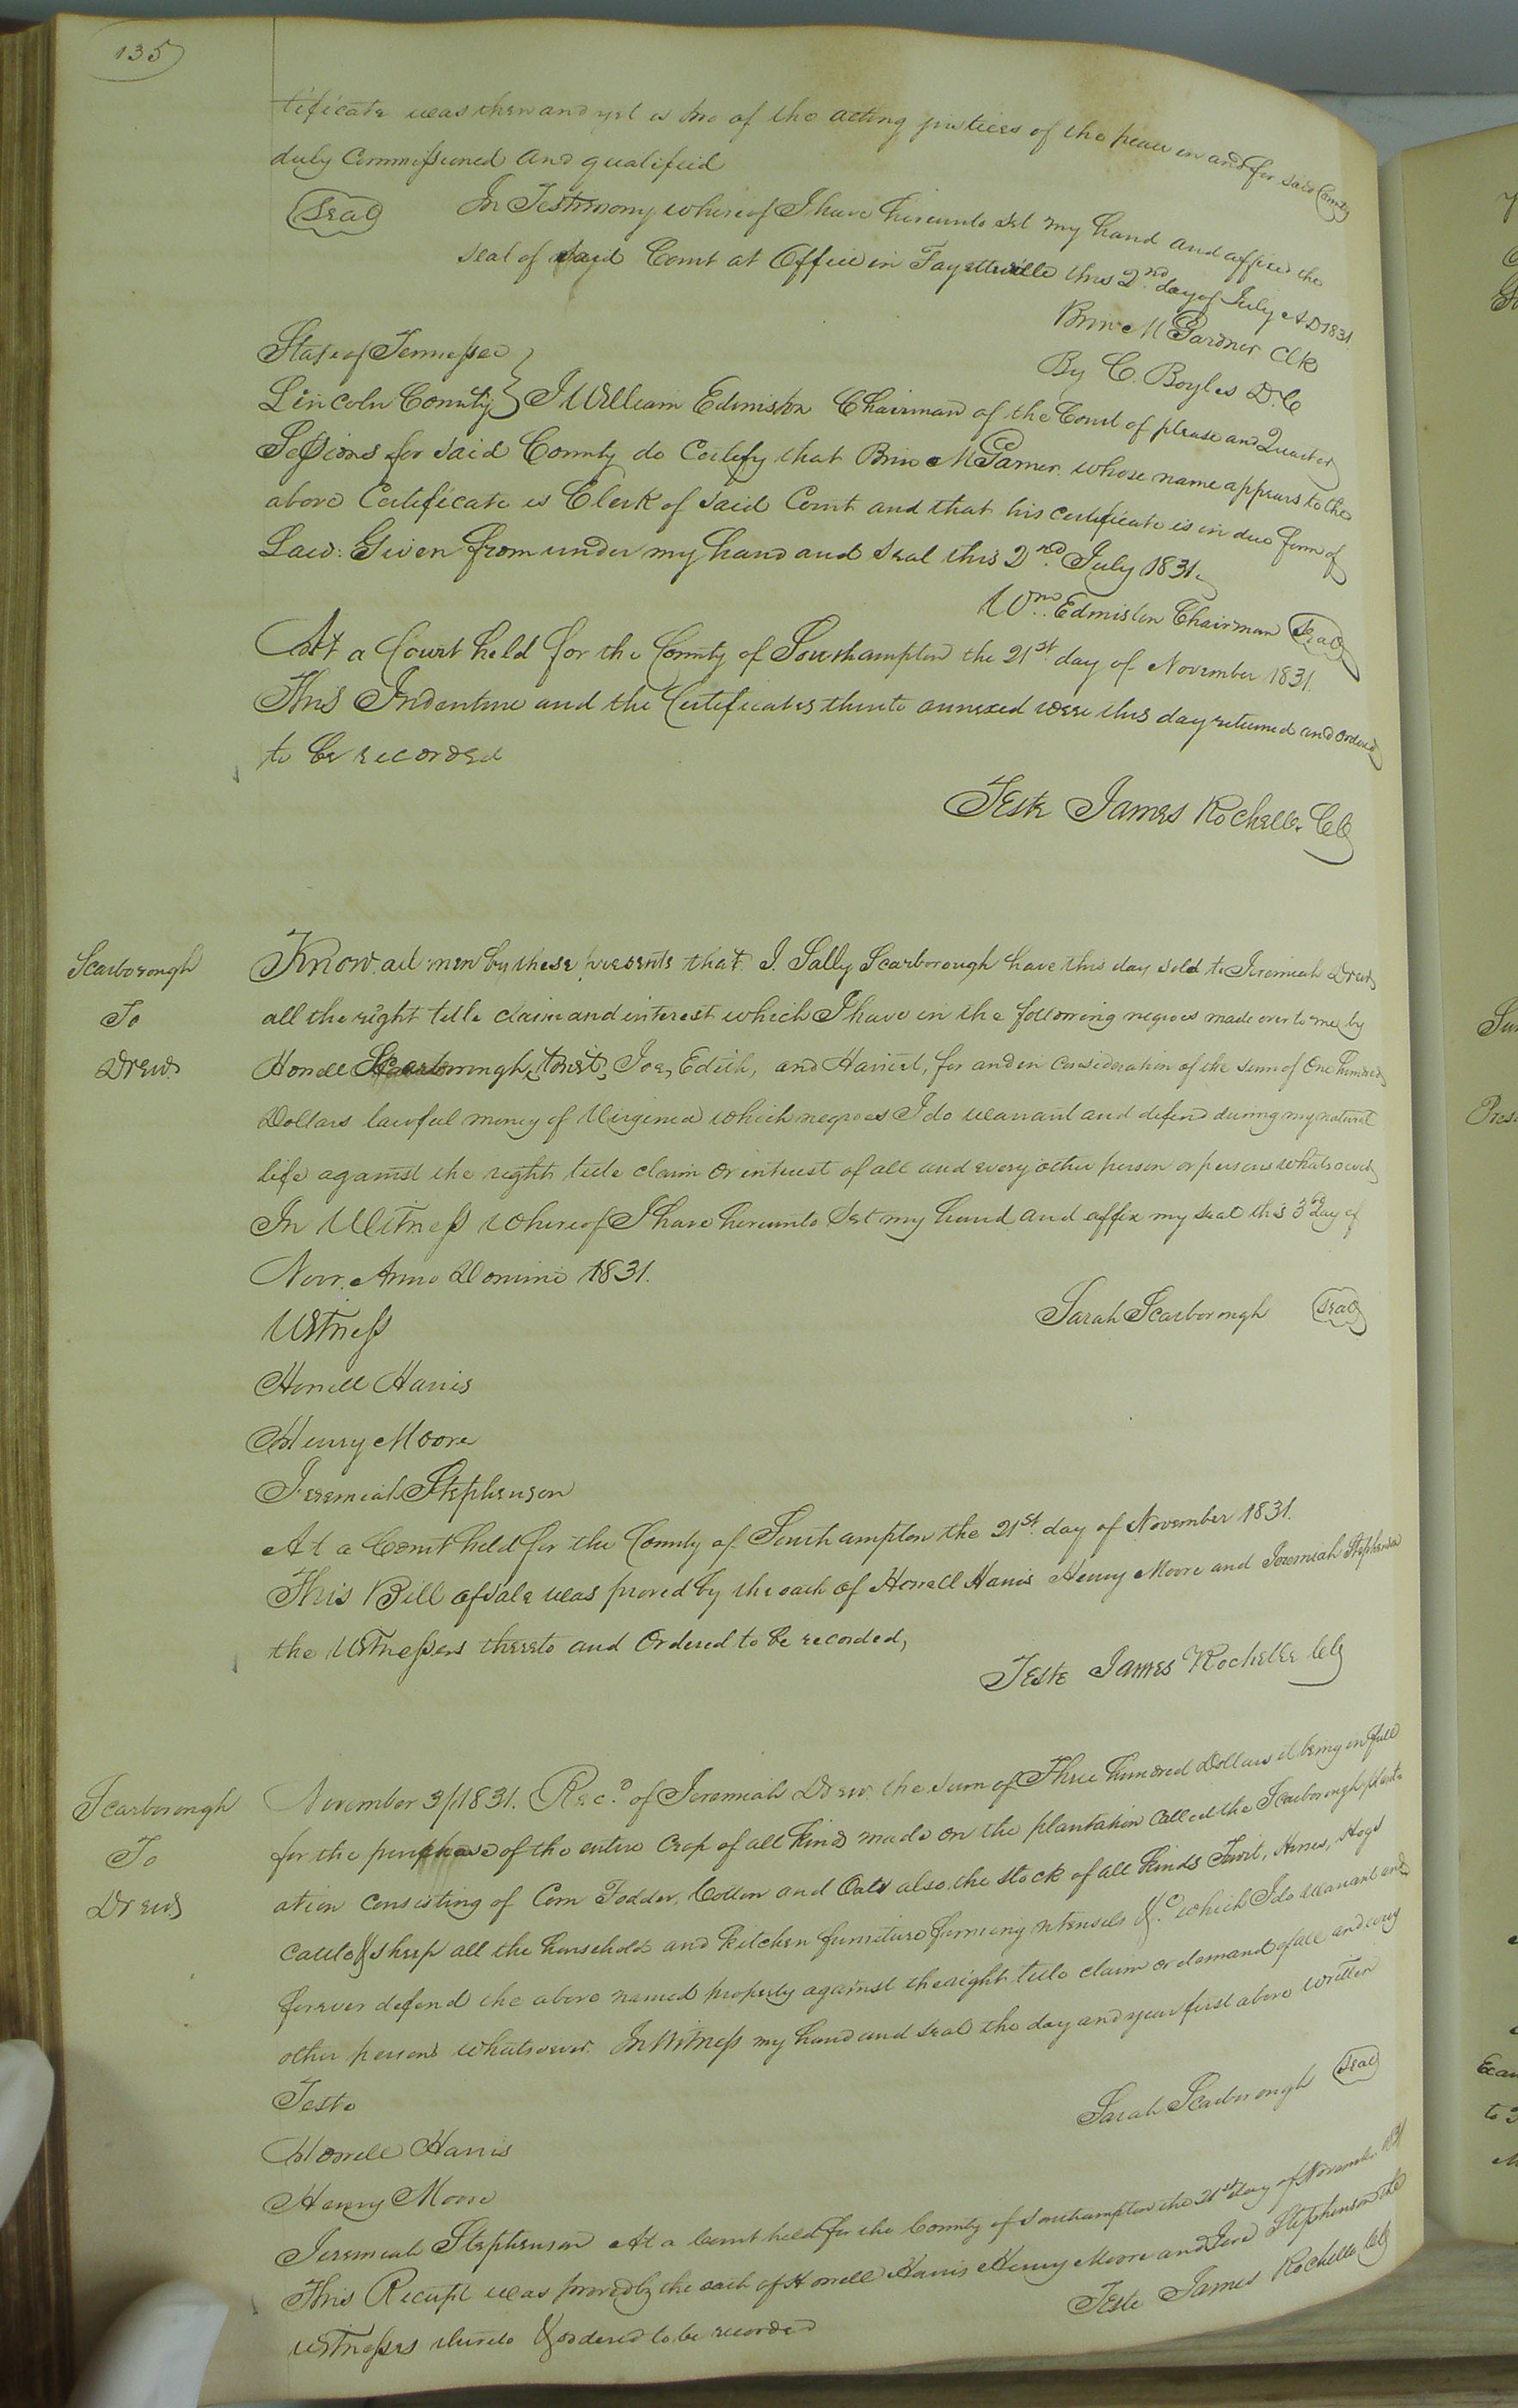 135
tificate was then and yet is one of the acting justices of the peace in and for said County
duly Commissioned and qualified
Seal In Testimony whereof I have hereunto set my hand and affixed the
seal of said Court at Office in Fayetteville this 2nd day of July A D 1831.
Brice M Garner Clk
By C. Boyles D.C
State of Tennessee
Lincoln County } I William Edmiston Chairman of the Court of please and Quarter
Sessions for said County do Certify that Brice M Garner whose name appears to the
above Certificate is Clerk of said Court and that his certificate is in due form of
Law: Given from under my hand and seal this 2nd July 1831.
Wm. Edmiston Chairman Seal
At a Court held for the County of Southampton the 21st day of November 1831.
This Indenture and the Certificates thereto annexed were this day returned and ordered
to be recorded
Teste James Rochelle CC
Scarborough
To
Drew
Know all men by these presents that I. Sally Scarborough have this day sold to Jeremiah Drew
all the right title claim and interest which I have in the following negroes made over to me by
Howell Scarborough, towit, Joe, Edith, and Harriet, for and in consideration of the sum of One hundred
Dollars lawful money of Virginia which negroes I do warrant and defend during my natural
life against the right title claim or interest of all and every other person or persons whatsoever
In Witness whereof I have hereunto Set my hand and affix my seal this 3d day of
Novr. Anno Domini 1831.
Sarah Scarborough Seal
Witness
Howell Harris
Henry Moore
Jeremiah Stephenson
At a Court held for the County of Southampton the 21st day of November 1831.
This Bill of sale was proved by the oath of Howell Harris Henry Moore and Jeremiah Stephenson
the Witnesses thereto and Ordered to be recorded,
Teste James Rochelle CC
Scarborough
To
Drew
November 3/1831. Recd. of Jeremiah Drew the sum of Three hundred Dollars it being in full
for the purchase of the entire Crop of all kind made on the plantation Called the Scarborough plant-
ation consisting of Corn Fodder, Cotton and Oats also the stock of all kinds Towit, Horses, Hogs
Cattle & sheep all the household and kitchen furniture farming utensils &c. which I do warrant and
forever defend the above named property against the right title claim or demand of all and every
other persons whatsoever. In Witness my hand and seal the day and year first above written
Sarah Scarborough Seal
Teste
Howell Harris
Henry Moore
Jeremiah Stephenson At a Court held for the County of Southampton the 21st day of November 1831
This Receipt was proved by the oath of Howell Harris Henry Moore and Jere Stephenson the
witnesses thereto & ordered to be recorded
Teste James Rochelle CC